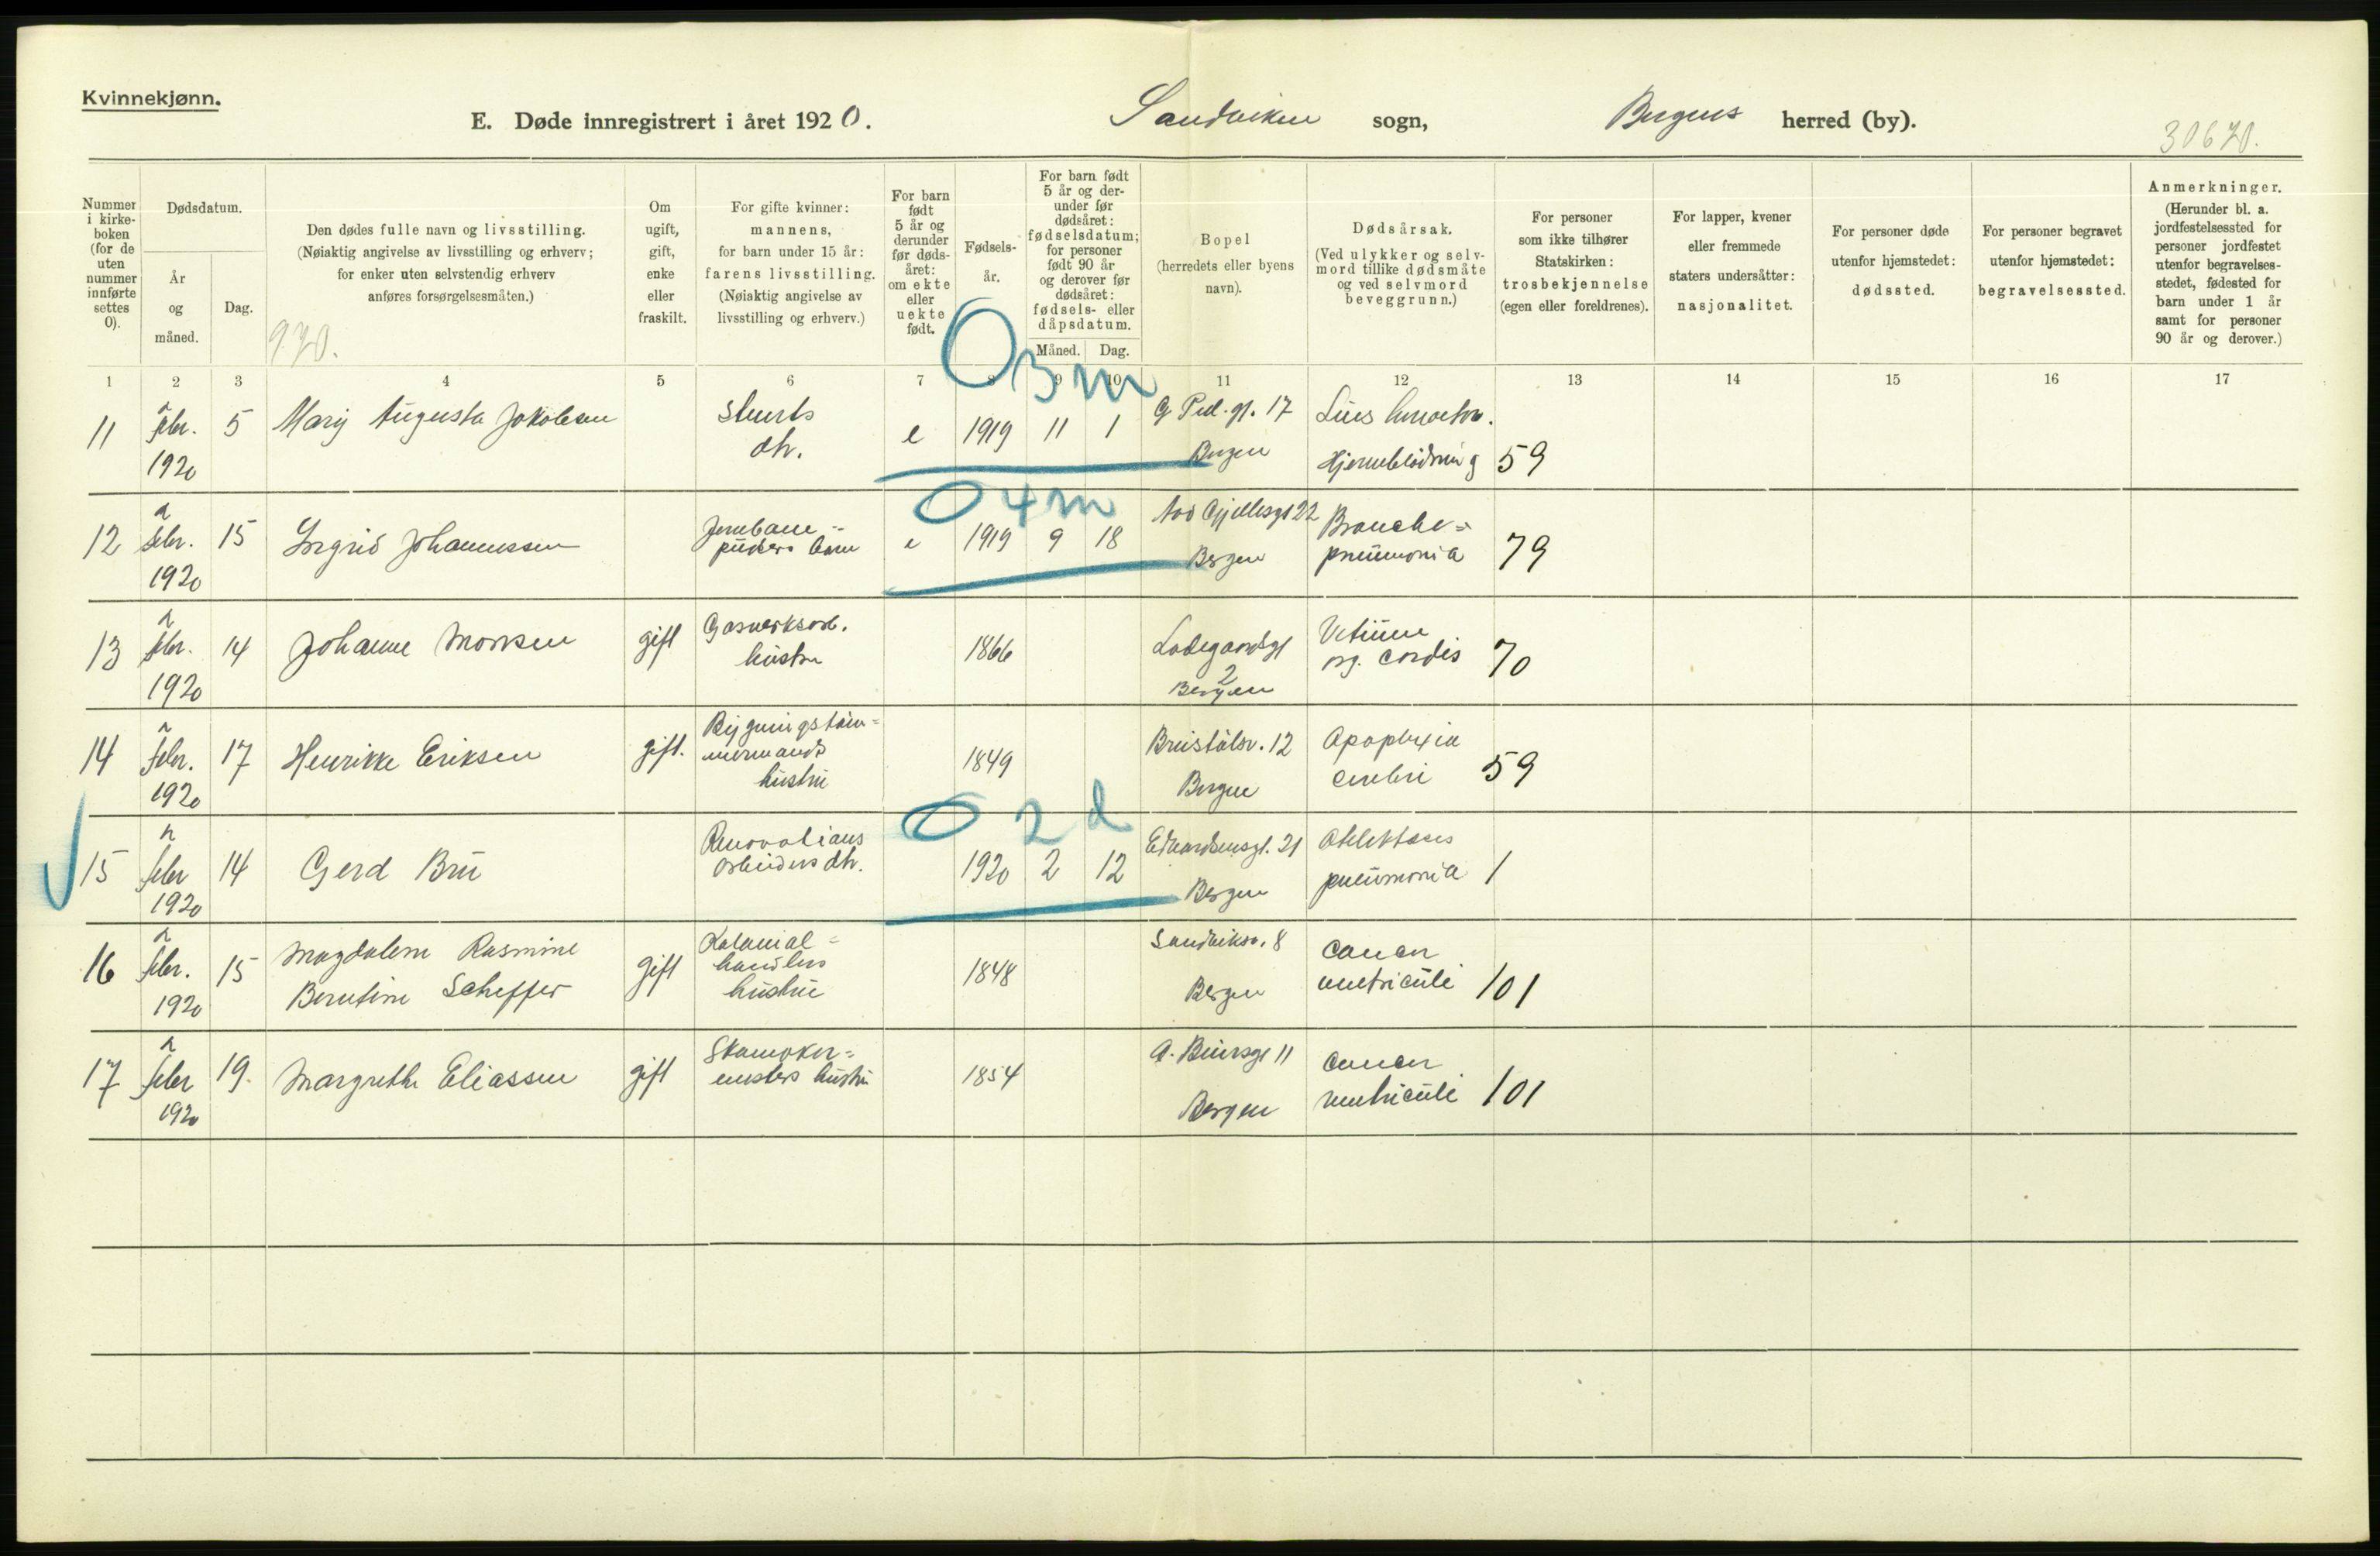 Kvinnekjønn.
E. Døde innregistrert i året 1920.
Sandviken sogn,
Bergens herred (by).
30670.
Nummer i kirke- boken (for de uten nummer innførte settes 0).
Dødsdatum.
År og måned.
Dag.
Den dødes fulle navn og livsstilling.
(Nøiaktig angivelse av livsstilling og erhverv;
for enker uten selvstendig erhverv
anføres forsørgelsesmåten.)
970.
Om ugift, gift, enke eller fraskilt.
For gifte kvinner:
mannens,
for barn under 15 år:
farens livsstilling.
(Nøiaktig angivelse av
livsstilling og erhverv.)
For barn født 5 år og derunder før døds- året: om ekte eller uekte født.
Fødsels- år.
For barn født 5 år og der- under før dødsåret: fødselsdatum; for personer født 90 år og derover før dødsåret: fødsels- eller dåpsdatum.
Måned. Dag.
Bopel
(herredets eller byens
navn).
Dødsårsak.
(Ved ulykker og selv-
mord tillike dødsmåte
og ved selvmord
beveggrunn.)
For personer
som ikke tilhører
Statskirken:
trosbekjennelse
(egen eller foreldrenes).
For lapper, kvener
eller fremmede
staters undersåtter:
nasjonalitet.
For personer døde
utenfor hjemstedet:
dødssted.
For personer begravet
utenfor hjemstedet:
begravelsessted.
Anmerkninger.
(Herunder bl. a.
jordfestelsessted for
personer jordfestet
utenfor begravelses-
stedet, fødested for
barn under 1 år
samt for personer
90 år og derover.)
1 2 3 4 5 6 7 8 9 10 11 12 13 14 15 16 17
0 3 m
11 febr. 1920 5 Mary Augusta Jakobsen
dtr. e 1919 11 1
17 Bergen
Lues
Hjerneblødning 59
0 4 m
12 febr. 1920 15 Ingrid Johannessen
Jernbane-
pudsers barn e 1919 9 18
22 Bergen
Broncho=
pneumonia 79
13 febr. 1920 14 Johanne Monsen gift
Gasverksarb.
hustru 1866
Ladegaardsgt
2
Bergen
Vitium
org. cordis 70
14 febr. 1920 17 Henrikke Eriksen gift.
Bygningstøm=
mermands
hustru 1849
12
Bergen
Apoplexia
cerebri 59
0 2 d
15 febr 1920 14 Gerd Bru
Renovations
arbeiders dtr. 1920 2 12
Edvardsensgt. 21
Bergen
Atelektases
pneumonia 1
16 febr. 1920 15 Magdalene Rasmine
Berntine Scheffer gift
Kolonial=
handlers
hustru 1848
Sandviksv. 8
Bergen
Cancer
ventriculi 101
17 febr 1920 19. Margrethe Eliassen gift
hustru 1854
11
Bergen
Cancer
ventriculi 101